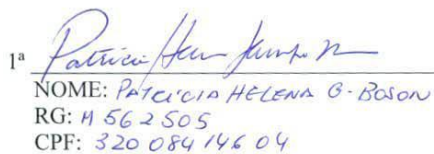 1ª Patricia
NOME: PATRÍCIA HELENA G. BOSON
RG: M 562505
CPF: 320 084 146 04